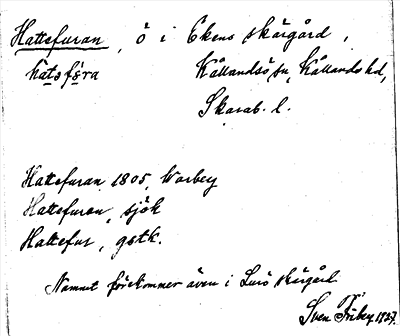 Hattefuran, ö i Ekens skärgård,
hatsføra Kållandsö sn, Kållands hd,
Skarab. l.
Hattefuran 1805, Warbey
Hattefuran, sjök
Hattefur, gstk.
Namnet förekommer även i Lurö skärgård
Sven 1927.